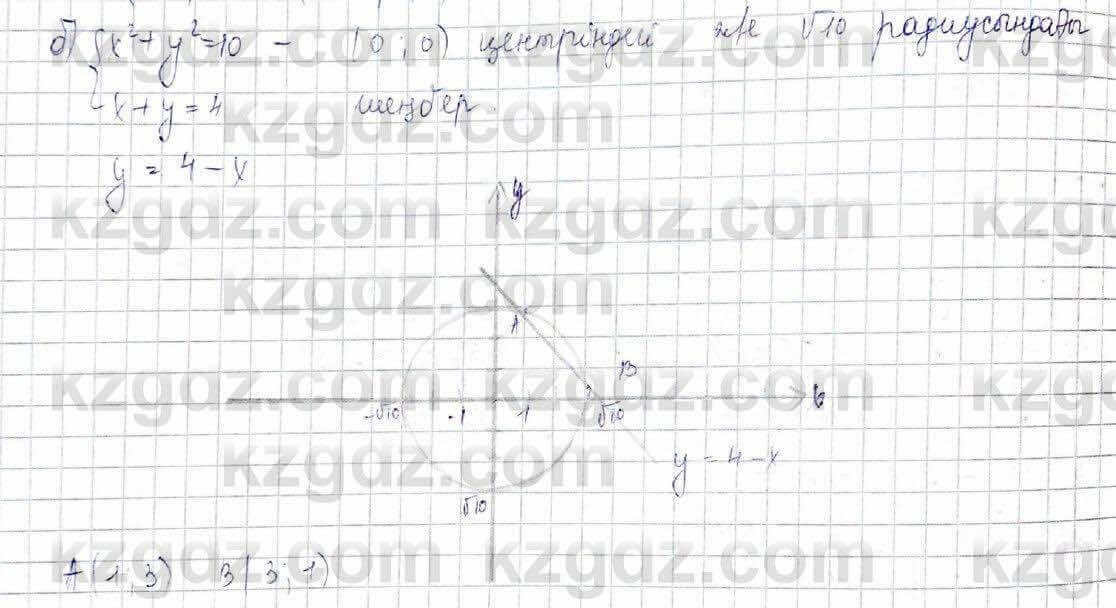 б) { x²+y²=10 - (0;0) центріндей және √10 радиусындағы
x+y=4 шеңбер.
y = 4-x
y
A
B
-√10 -1 1 √10
y = 4-x
√10
A(1,3) B(3;1)
kzgdz.com kzgdz.com
kzgdz.com kzgdz.com kzgdz.com
kzgdz.com
kzgdz.com kzgdz.com kzgdz.com
kzgdz.com
kzgdz.com kzgdz.com kzgdz.com